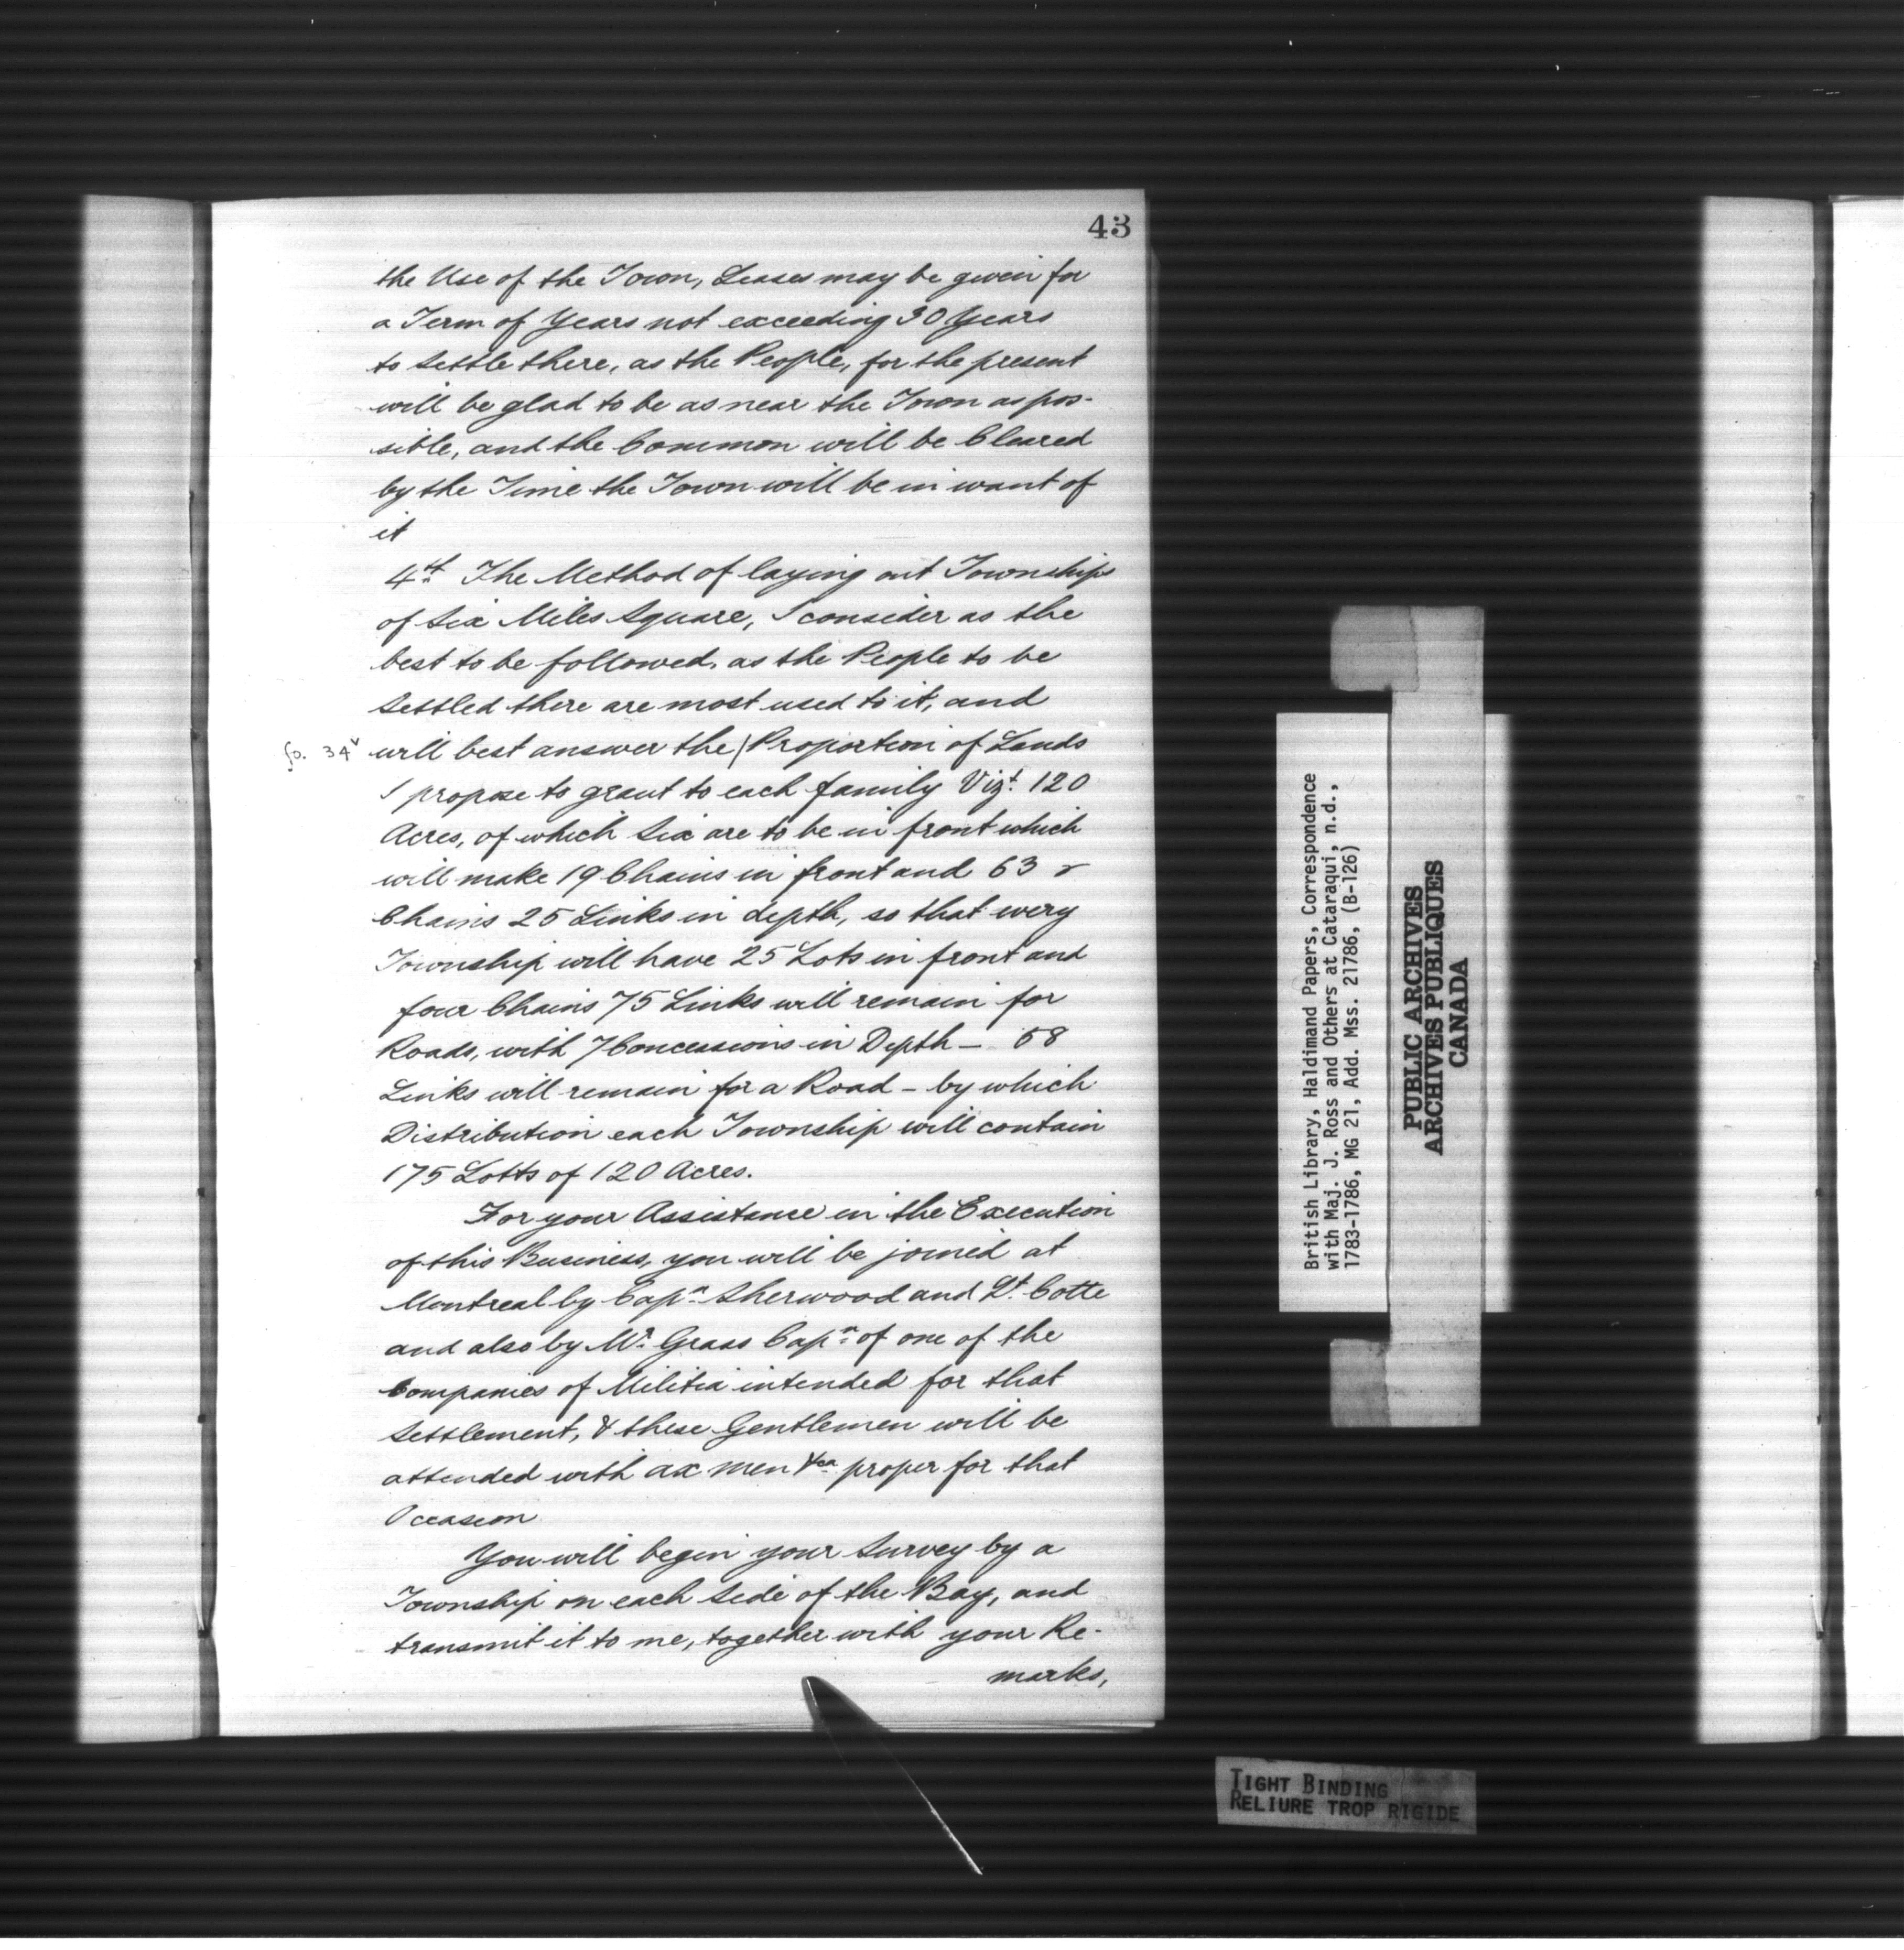 43
the Use of the Town, Leases may be given for
a Term of Years not exceeding 30 Years
to settle there, as the People, for the present
will be glad to be as near the Town as pos-
sible, and the Common will be Cleared
by the Time the Town will be in want of
it
4th The Method of laying out Townships
of Six Miles Square, I consider as the
best to be followed, as the People to be
settled there are most used to it, and
fo. 34v will best answer the | Proportion of Lands
I propose to grant to each family Vizt. 120
Acres, of which Six are to be in front which
will make 19 Chains in front and 63
Chains 25 Links in depth, so that every
Township will have 25 Lots in front and
four Chains 75 Links will remain for
Roads, with 7 Concessions in Depth — 58
Links will remain for a Road – by which
Distribution each Township will contain
175 Lotts of 120 Acres.
For your Assistance in the Execution
of this Business, you will be joined at
Montreal by Capn. Sherwood and Lt. Cotte
and also by Mr. Grass Capn. of one of the
Companies of Militia intended for that
Settlement, & these Gentlemen will be
attended with ax men &ca proper for that
Occasion
You will begin your Survey by a
Township on each Side of the Bay, and
transmit it to me, together with your Re-
marks,
British Library, Haldimand Papers, Correspondence
with Maj. J. Ross and Others at Cataraqui, n.d.,
1783-1786, MG 21, Add. Mss. 21786, (B-126)
PUBLIC ARCHIVES
ARCHIVES PUBLIQUES
CANADA
TIGHT BINDING
RELIURE TROP RIGIDE